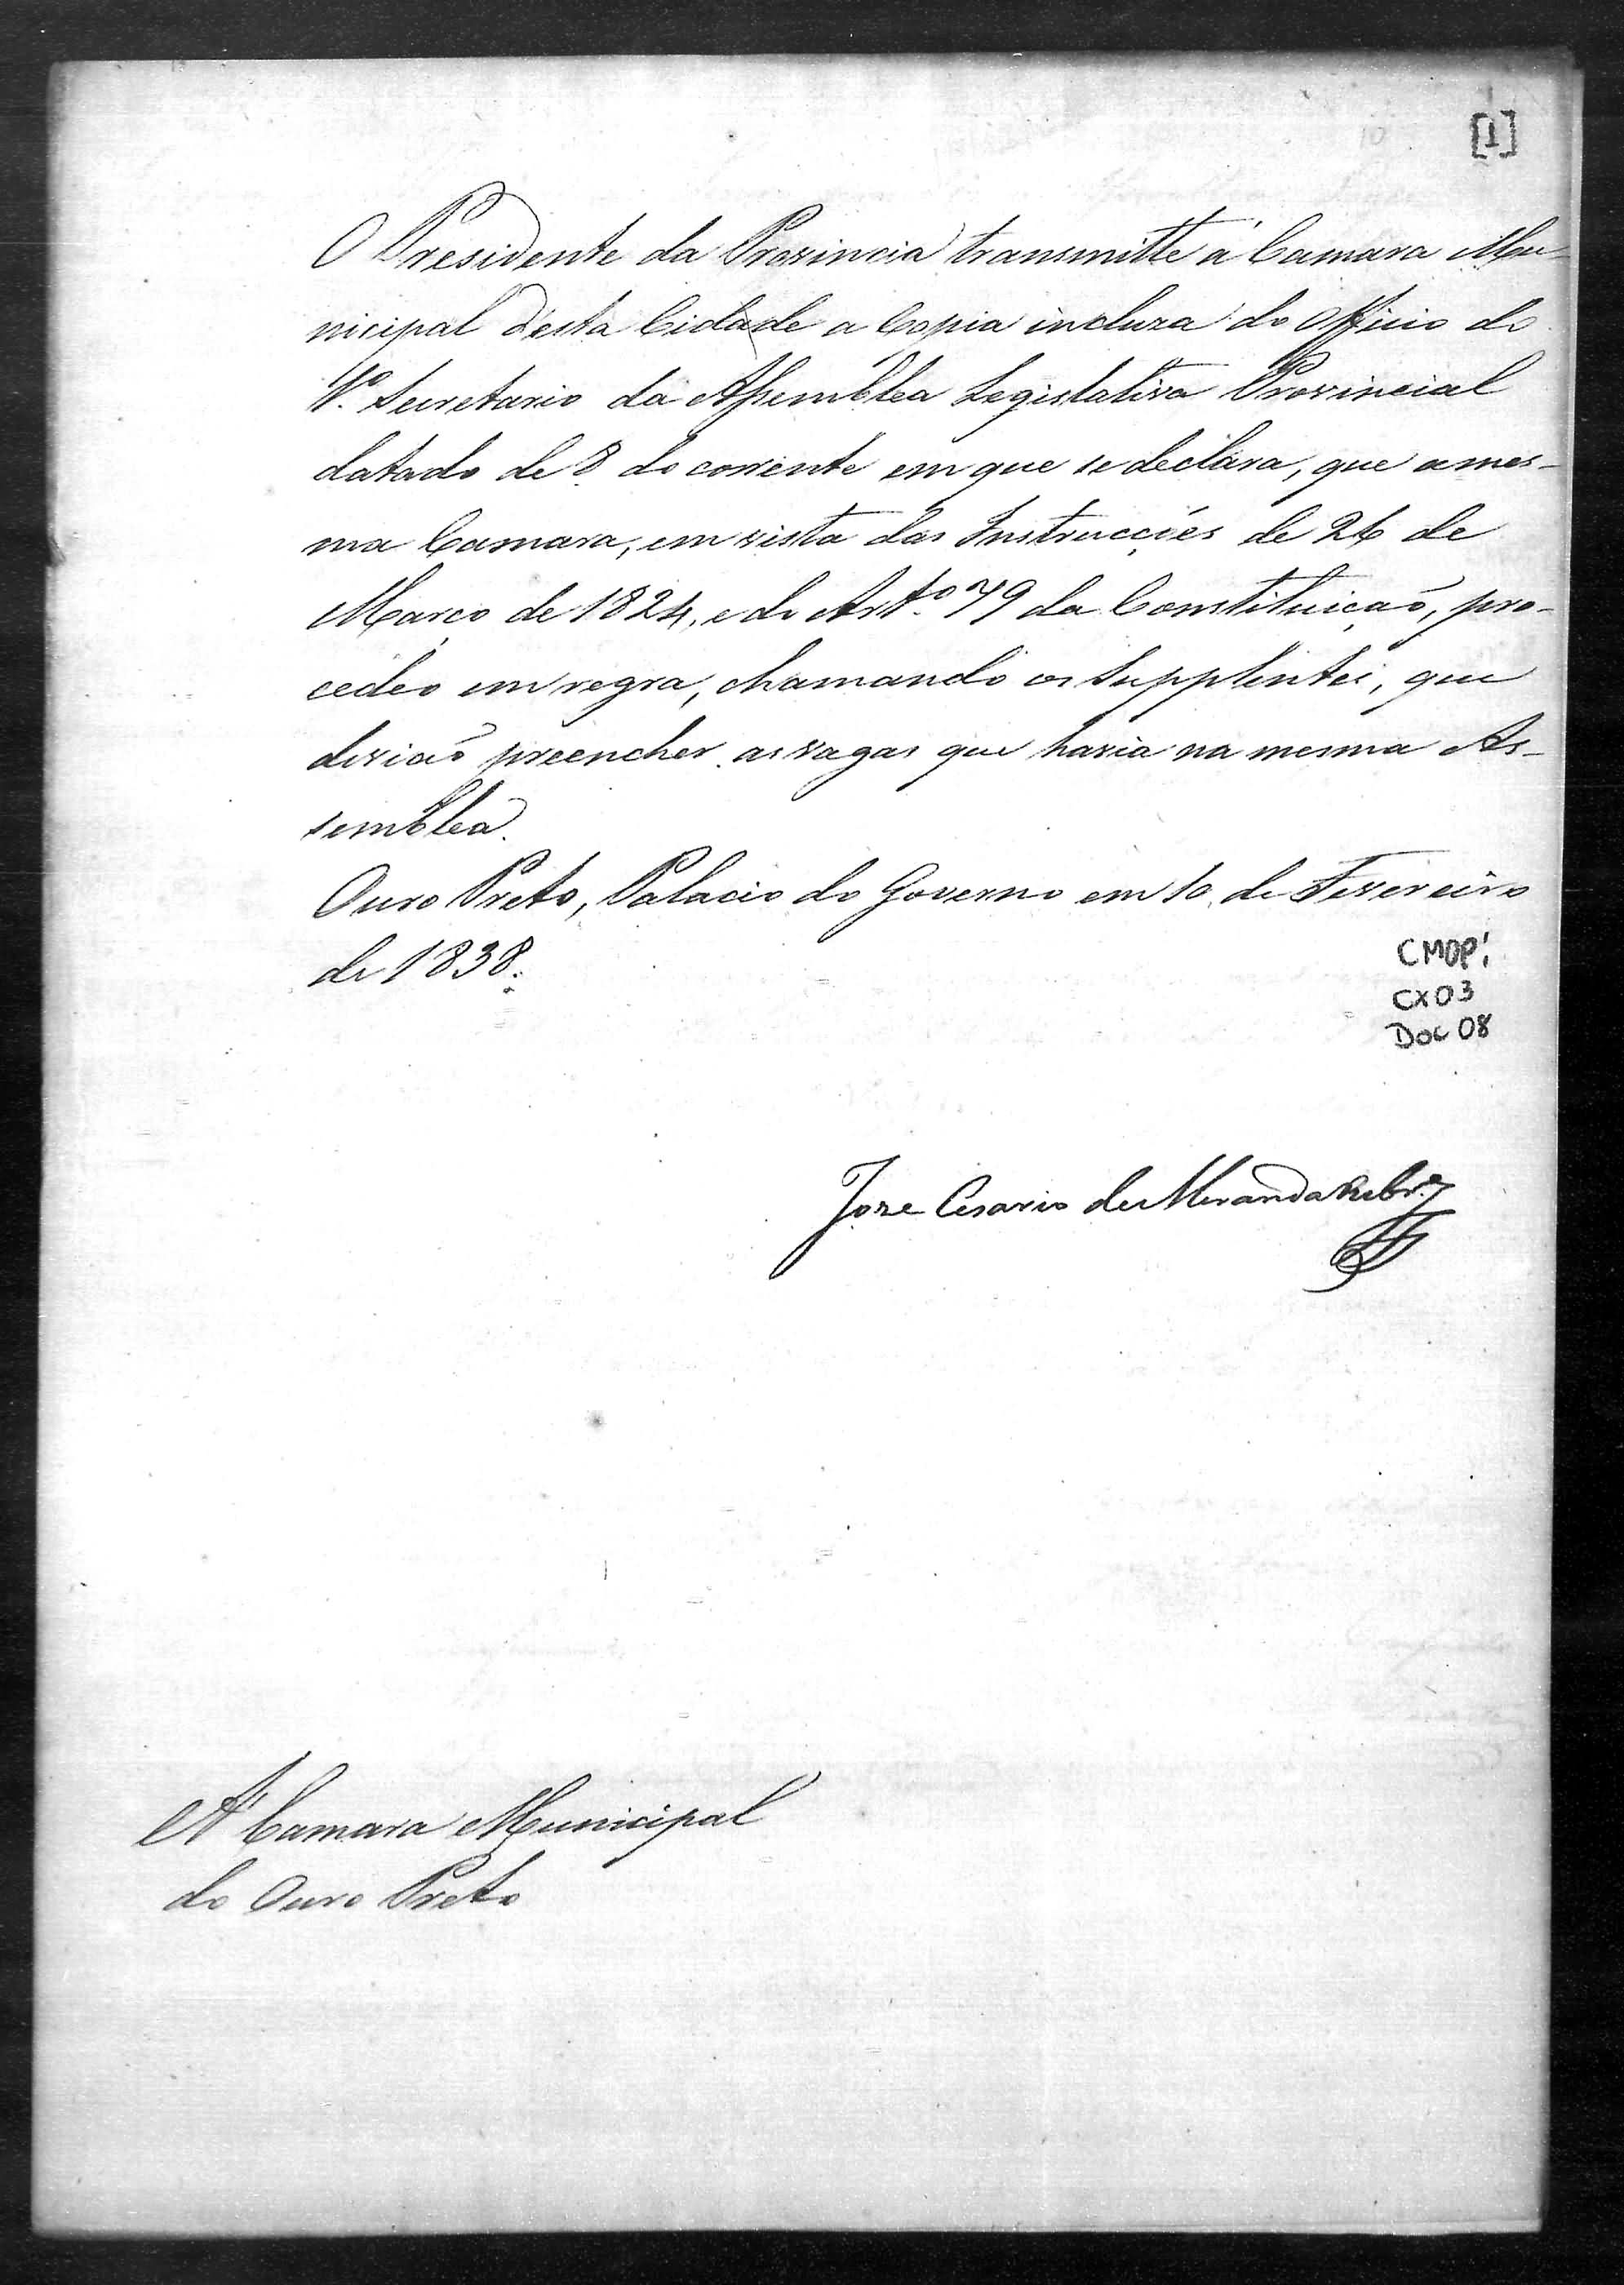 [1]
O Presidente da Provincia transmitte á Camara Mu-
nicipal d'esta Cidade a Copia incluza do Officio do
1º. Secretario da Assemblea Legislativa Provincial
datado de 8 do corrente em que se declara, que a mes-
ma Camara, em vista das Instrucções de 26 de
Março de 1824, e do Artº. 79 da Constituição, pro-
cedeo em regra, chamando os Supplentes, que
devião preencher as vagas que havia na mesma As-
semblea.
Ouro Preto, Palacio do Governo em 10 de Fevereiro
de 1838.
CMOP!
CX03
Doc 08
Jose Cesario de Miranda Ribrº
A' Camara Municipal
do Ouro Preto